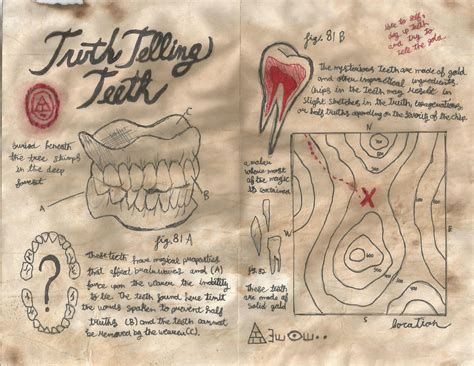 Truth Telling
Teeth
buried beneath
the tree stumps
in the deep
forest
C
B
A
fig. 81 A
?
These teeth have magical properties
that affect brainwaves and (A)
force upon the wearer the inability
to lie. The teeth found here limit
the words spoken to prevent half
truths (B) and the teeth cannot
be removed by the wearer (C).
fig. 81 B
able to self.
dig up teeth
and try to
sell the gold.
The mysterious teeth are made of gold
and other impractical ingredients.
Chips in the teeth may result in
slight sketches in the truth, exaggerations,
or half truths depending on the severity of the chip.
where most
of the magic
is contained
fig. 82
These teeth
are made of
solid gold
N
X
S
location